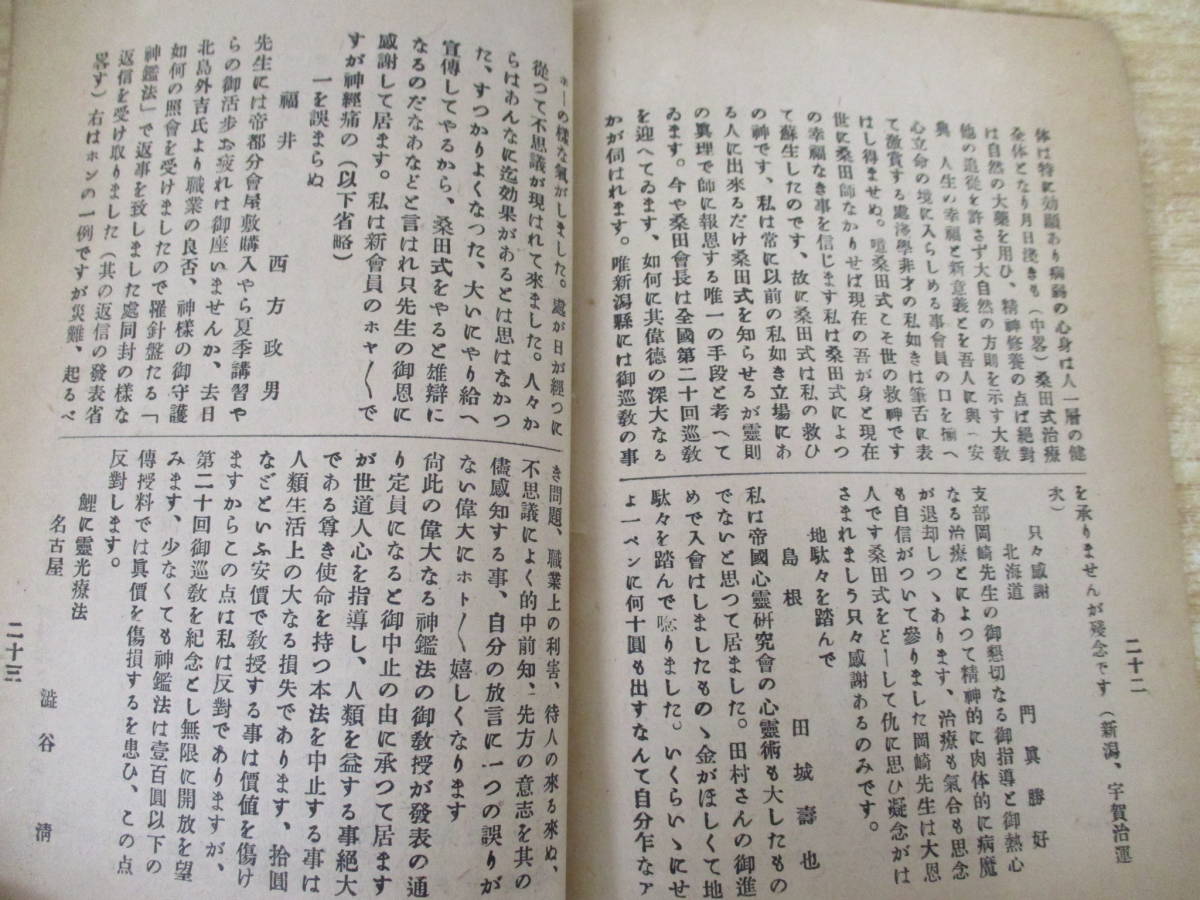 二十二
体は特に効顯あり病弱の心身は人一層の健
全体となり月日淺きも（中畧）桑田式治療
は自然の大藥を用ひ、精神修養の点ば絕對
他の追從を許さず大自然の方則を示す大敎
典、人生の幸福と新意義とを吾人に與へ安
心立命の境に入らしめる事會員の口を揃へ
て激賞する處淺學非才の私如きは筆舌に表
はし得ませぬ。噫桑田式こそ世の救神です
世に桑田師なかりせば現在の吾が身と現在
の幸福なき事を信じます私は桑田式によつ
て蘇生したのです、故に桑田式は私の救ひ
の神です、私は常に以前の私如き立場にあ
る人に出來るだけ桑田式を知らせるが靈則
の眞理で師に報恩する唯一の手段と考へて
ゐます。今や桑田會長は全國第二十回巡敎
を迎へてゐます、如何に其偉德の深大なる
かが伺はれます。唯新潟縣には御巡敎の事
を承りませんが殘念です（新潟、宇賀治運
次）
只々感謝
北海道　門眞勝好
支部岡崎先生の御懇切なる御指導と御熱心
なる治療とによつて精神的に肉体的に病魔
が退却しつゝあります、治療も氣合も思念
も自信がついて參りました岡崎先生は大恩
人です桑田式をどーして仇に思ひ疑念がは
さまれましう只々感謝あるのみです。
地駄々を踏んで
島根　田城壽也
私は帝國心靈硏究會の心靈術も大したもの
でないと思つて居ました。田村さんの御進
めで入會はしましたものゝ金がほしくて地
駄々を踏んで唸りました。いくらいゝにせ
よ一ペンに何十圓も出すなんて自分乍なア
ホーの樣な氣がしました。處が日が經つに
從つて不思議が現はれて來ました。人々か
らはあんなに迄効果があるとは思はなかつ
た、すつかりよくなつた、大いにやり給へ
宣傳してやるから、桑田式をやると雄辯に
なるのだなあなどと言はれ只先生の御恩に
感謝して居ます。私は新會員のホヤ〳〵で
すが神經痛の（以下省略）
一を誤まらぬ
福井　西方政男
先生には帝都分會屋敷購入やら夏季講習や
らの御活歩お疲れは御座いませんか、去日
北島外吉氏より職業の良否、神樣の御守護
如何の照會を受けましたので羅針盤たる「
神鑑法」で返事を致しました處同封の樣な
返信を受け取りました（其の返信の發表省
畧す）右はホンの一例ですが災難、起るべ
き問題、職業上の利害、待人の來る來ぬ、
不思議によく的中前知、先方の意志を其の
儘感知する事、自分の放言に一つの誤りが
ない偉大にホト〳〵嬉しくなります
尙此の偉大なる神鑑法の御敎授が發表の通
り定員になると御中止の由に承つて居ます
が世道人心を指導し、人類を益する事絕大
である尊き使命を持つ本法を中止する事は
人類生活上の大なる損失であります、拾圓
などといふ安價で敎授する事は價値を傷け
ますからこの点は私は反對でありますが、
第二十回御巡敎を紀念とし無限に開放を望
みます、少なくても神鑑法は壹百圓以下の
傳授料では眞價を傷損するを患ひ、この点
反對します。
鯉に靈光療法
名古屋　澁谷淸
二十三